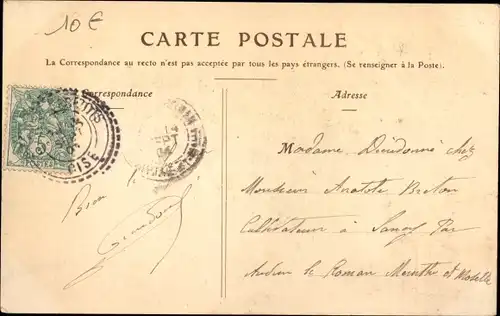 10€
CARTE POSTALE
La Correspondance au recto n'est pas acceptée par tous les pays étrangers. (Se renseigner à la Poste).
Correspondance
Adresse
Madame Dieudonné chez
Monsieur Anatole Breton
Cultivateur à Sancy Par
Audun le Roman Meurthe et Moselle
Bien